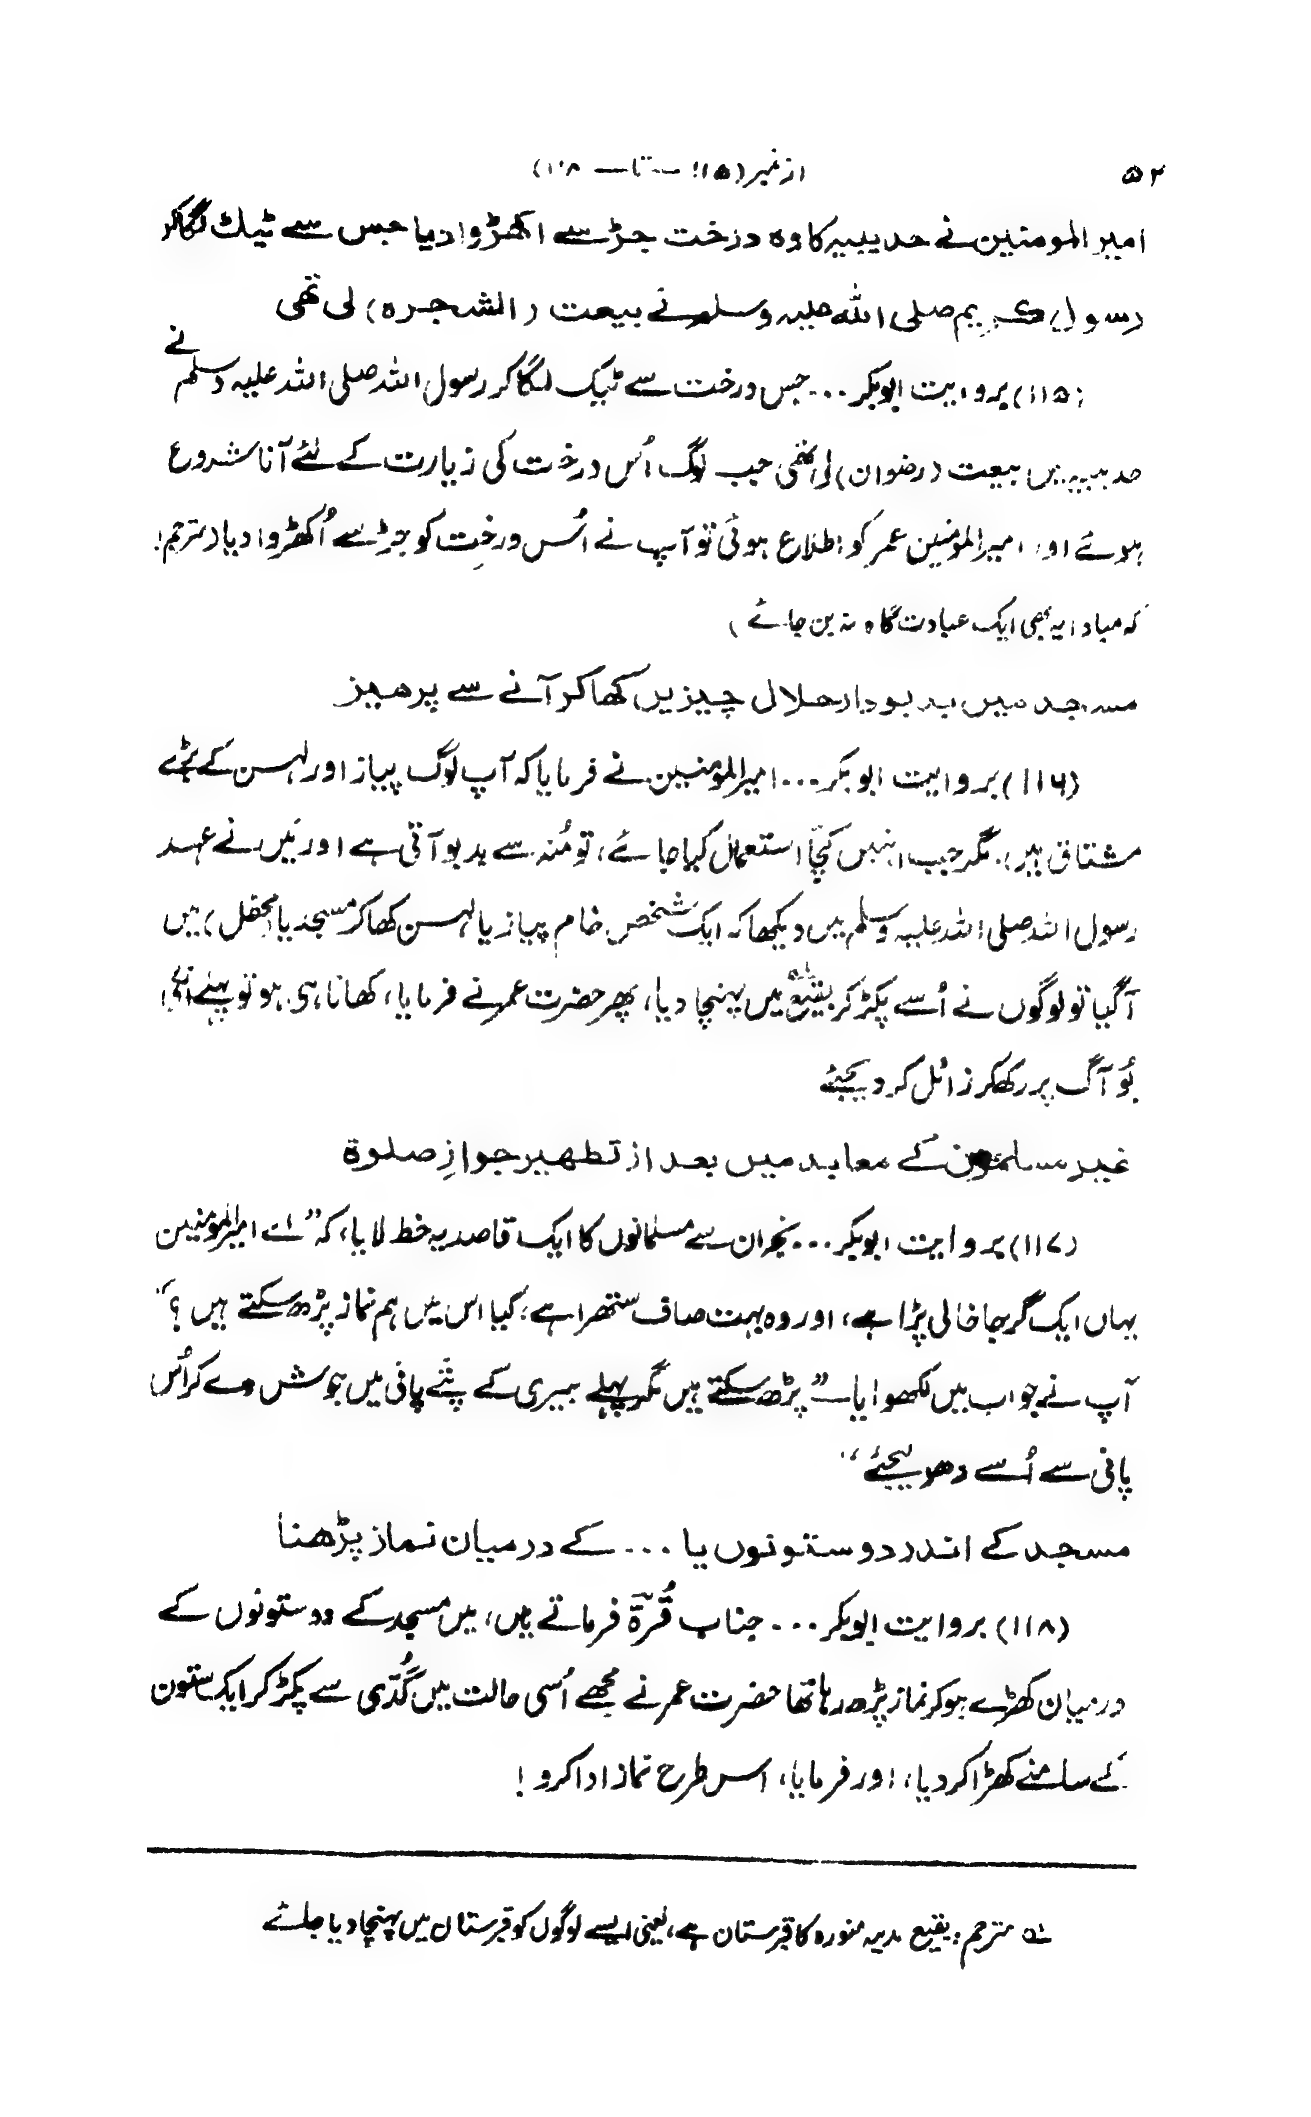 ۵۲
از نمبر (۱۱۵ — تا — ۱۱۸)
امیر المومنین نے حدیبیہ کا وہ درخت جڑ سے اکھڑوا دیا جس سے ٹیک لگا کر
رسول کریم صلی اللہ علیہ وسلم نے بیعت (الشجرہ) لی تھی
(۱۱۵) بروایت ابوبکر ... جس درخت سے ٹیک لگا کر رسول اللہ صلی اللہ علیہ وسلم نے
حدیبیہ میں بیعت (رضوان) لی تھی جب لوگ اُس درخت کی زیارت کے لئے آنا شروع
ہوئے اور امیر المومنین عمر کو اطلاع ہوئی تو آپ نے اُس درخت کو جڑ سے اُکھڑوا دیا (مترجم:
کہ مبادا یہ بھی ایک عبادت گاہ نہ بن جائے)
مسجد میں بدبودار حلال چیزیں کھا کر آنے سے پرہیز
(۱۱۶) بروایت ابوبکر ... امیر المومنین نے فرمایا کہ آپ لوگ پیاز اور لہسن کے بڑے
مشتاق ہیں، مگر جب انہیں کچّا استعمال کیا جائے، تو مُنہ سے بدبو آتی ہے اور میں نے عہد
رسول اللہ صلی اللہ علیہ وسلم میں دیکھا کہ ایک شخص خام پیاز یا لہسن کھا کر مسجد یا (محفل) میں
آگیا تو لوگوں نے اُسے پکڑ کر بقیع میں پہنچا دیا، پھر حضرت عمر نے فرمایا، کھانا ہی ہو تو پہلے انکی
بُو آگ پر رکھ کر زائل کر دیجئے
غیر مسلموں کے معابد میں بعد از تطہیر جوازِ صلوۃ
(۱۱۷) بروایت ابوبکر ... نجران سے مسلمانوں کا ایک قاصد یہ خط لایا، کہ "اے امیر المومنین
یہاں ایک گرجا خالی پڑا ہے، اور وہ بہت صاف ستھرا ہے، کیا اس میں ہم نماز پڑھ سکتے ہیں ؟"
آپ نے جواب میں لکھوایا — "پڑھ سکتے ہیں مگر پہلے بیری کے پتے پانی میں جوش دے کر اُس
پانی سے اُسے دھو لیجئے"
مسجد کے اندر دو ستونوں یا ... کے درمیان نماز پڑھنا
(۱۱۸) بروایت ابوبکر ... جناب قُرّۃ فرماتے ہیں، میں مسجد کے دو ستونوں کے
درمیان کھڑے ہو کر نماز پڑھ رہا تھا حضرت عمر نے مجھے اُسی حالت میں گُدّی سے پکڑ کر ایک ستون
کے سامنے کھڑا کر دیا، اور فرمایا، اس طرح نماز ادا کرو !
مترجم: بقیع مدینہ منورہ کا قبرستان ہے، یعنی ایسے لوگوں کو قبرستان میں پہنچا دیا جائے